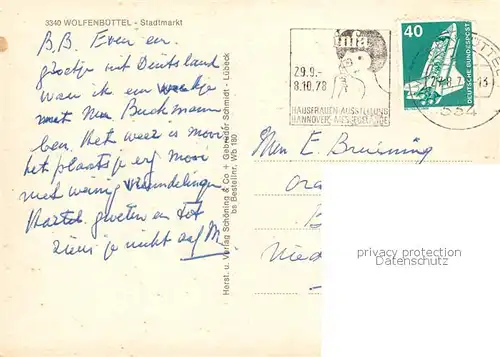 3340 WOLFENBÜTTEL - Stadtmarkt
B.B. Even een
groetje uit Duitsland
Waar ik een weekje
met Mw Buckmann
ben. Het weer is mooi
het plaatsje erg mooi
met weinig vreemdelingen
Hartel. groeten en tot
ziens je nicht
Herst. u. Verlag Schöning & Co + Gebrüder Schmidt - Lübeck
bs Bestellnr. Wb 180
29.9.-
8.10.78
HAUSFRAUEN-AUSSTELLUNG
HANNOVER-MESSEGELÄNDE
40
DEUTSCHE BUNDESPOST
334
E. Bruining
privacy protection
Datenschutz